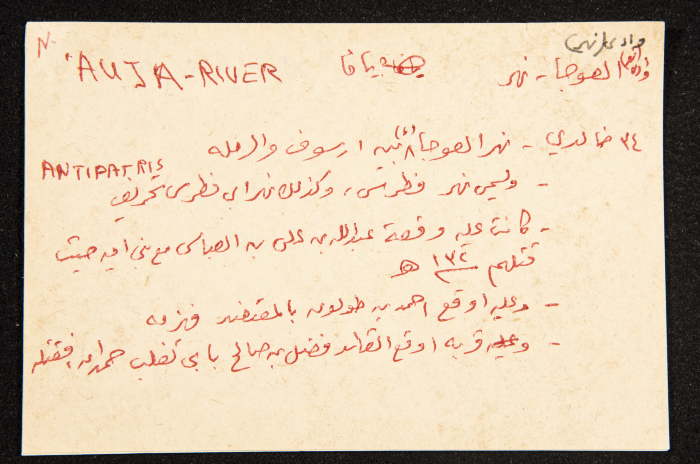 N.
'AUJA-RIVER يافا العوجا - نهر
٣٤ خالدي - نهر العوجا بين ارسوف والرمله
ANTIPATRIS
- وليس نهر فطرس، وكذلك نهر ابي فطرس تحريف
- كانت عليه وقعة عبدالله بن علي بن العباس مع بني اميه حيث
قتلهم ١٣٢ هـ
- وعليه اوقع احمد بن طولون بالمعتضد فهزمه
- وعليه قربه اوقع القائد فضل بن صالح بابي تغلب حمدان، فقتله